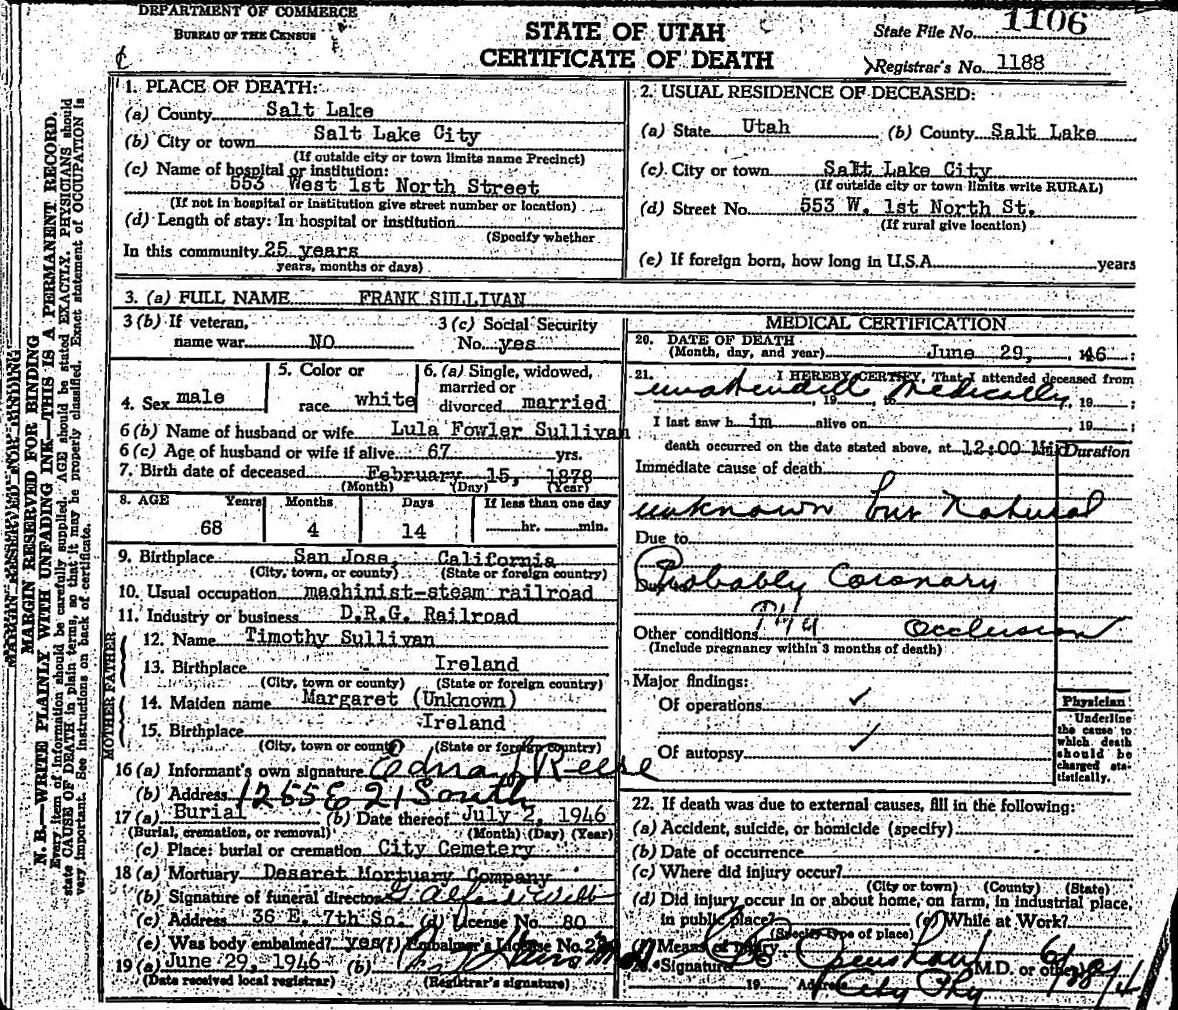 DEPARTMENT OF COMMERCE
BUREAU OF THE CENSUS
STATE OF UTAH
CERTIFICATE OF DEATH
State File No. 1106
Registrar's No. 1188
MARGIN RESERVED FOR BINDING
N. B.—WRITE PLAINLY WITH UNFADING INK—THIS IS A PERMANENT RECORD.
Every item of information should be carefully supplied. AGE should be stated EXACTLY. PHYSICIANS should
state CAUSE OF DEATH in plain terms, so that it may be properly classified. Exact statement of OCCUPATION is
very important. See instructions on back of certificate.
1. PLACE OF DEATH:
(a) County Salt Lake
(b) City or town Salt Lake City
(If outside city or town limits name Precinct)
(c) Name of hospital or institution:
553 West 1st North Street
(If not in hospital or institution give street number or location)
(d) Length of stay: In hospital or institution
(Specify whether
In this community 25 years
years, months or days)
2. USUAL RESIDENCE OF DECEASED:
(a) State Utah (b) County Salt Lake
(c) City or town Salt Lake City
(If outside city or town limits write RURAL)
(d) Street No. 553 W. 1st North St.
(If rural give location)
(e) If foreign born, how long in U.S.A. years
3. (a) FULL NAME FRANK SULLIVAN
3 (b) If veteran, name war NO
3 (c) Social Security No. yes
4. Sex male
5. Color or race white
6. (a) Single, widowed, married or divorced married
6 (b) Name of husband or wife Lula Fowler Sullivan
6 (c) Age of husband or wife if alive 67 yrs.
7. Birth date of deceased February 15, 1878
(Month) (Day) (Year)
8. AGE Years Months Days If less than one day
68 4 14 hr. min.
9. Birthplace San Jose, California
(City, town, or county) (State or foreign country)
10. Usual occupation machinist-steam railroad
11. Industry or business D.R.G. Railroad
FATHER
12. Name Timothy Sullivan
13. Birthplace - Ireland
(City, town or county) (State or foreign country)
MOTHER
14. Maiden name Margaret (Unknown)
15. Birthplace Ireland
(City, town or county) (State or foreign country)
16 (a) Informant's own signature Edna J Reese
(b) Address 1255 E 21 South
17 (a) Burial (b) Date thereof July 2, 1946
(Burial, cremation, or removal) (Month) (Day) (Year)
(c) Place: burial or cremation City Cemetery
18 (a) Mortuary Deseret Mortuary Company
(b) Signature of funeral director G. Alfred Webb
(c) Address 36 E. 7th So. (d) License No. 80
(e) Was body embalmed? yes (f) Embalmer's License No.
19 (a) June 29, 1946 (b)
(Date received local registrar) (Registrar's signature)
MEDICAL CERTIFICATION
20. DATE OF DEATH
(Month, day, and year) June 29, 1946 :
21. I HEREBY CERTIFY, That I attended deceased from
unattended medically, 19 to 19 ;
I last saw h im alive on 19 ;
death occurred on the date stated above, at 12:00 Duration
Immediate cause of death
unknown but Natural
Due to
Probably Coronary
Other conditions Occlusion
(Include pregnancy within 3 months of death)
Major findings:
Of operations ✓
Of autopsy ✓
Physician
Underline the cause to which death should be charged statistically.
22. If death was due to external causes, fill in the following:
(a) Accident, suicide, or homicide (specify)
(b) Date of occurrence
(c) Where did injury occur?
(City or town) (County) (State)
(d) Did injury occur in or about home, on farm, in industrial place,
in public place? (e) While at Work?
(Specify type of place)
(f) Means of injury
Signature M.D. or other
19 Address City Phy